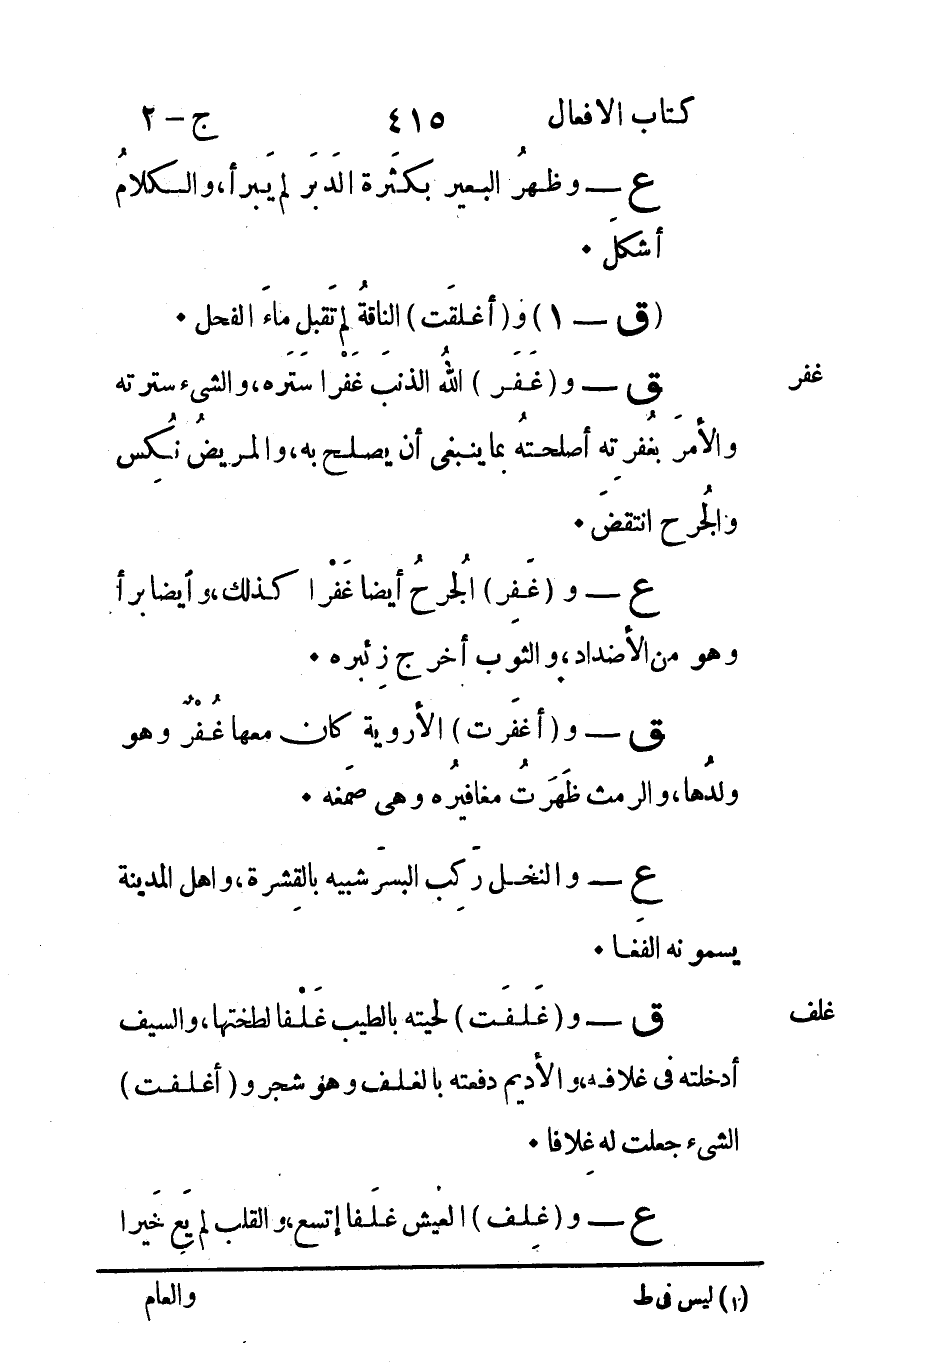 كتاب الافعال ٤١٥ ج – ٢
ع — وظهرُ البعير بكثَرة الدَبَر لم يَبرأ، والكلامُ
أشكلَ ٠
(ق — ١) و(أغلقَت) الناقةُ لم تَقبل ماءَ الفحل ٠
غفر
ق — و(غَفَر) اللهُ الذنبَ غَفْرا سَتَره، والشىء سترته
والأمرَ بغُفرتِه أصلحتهُ بما ينبغى أن يصلح به، والمريضُ نُكِس
والجُرح انتقضَ ٠
ع — و (غَفِر) الجُرحُ أيضا غَفْرا كذلك، وأيضا برأ
وهو من الأضداد، والثوب أخرج زِئبره ٠
ق — و(أغفَرت) الأروية كان معها غُفْرٌ وهو
ولدُها، والرمث ظَهَرَتُ مغافيرُه وهى صَمغه ٠
ع — والنخل رَكِب البسرَ شبيه بالقِشرة، واهل المدينة
يسمونه الفَغا ٠
غلف
ق — و(غَلَفَت) لحيته بالطيب غَلْفا لطختها، والسيف
أدخلته فى غلافه، والأديم دفعته بالغلف وهو شجر و(أغلفت)
الشىء جعلت له غِلافا ٠
ع — و(غلِف) العيش غلَفا إتسع، والقلب لم يَعِ خَيرا
(١) ليس فى ط
والعام